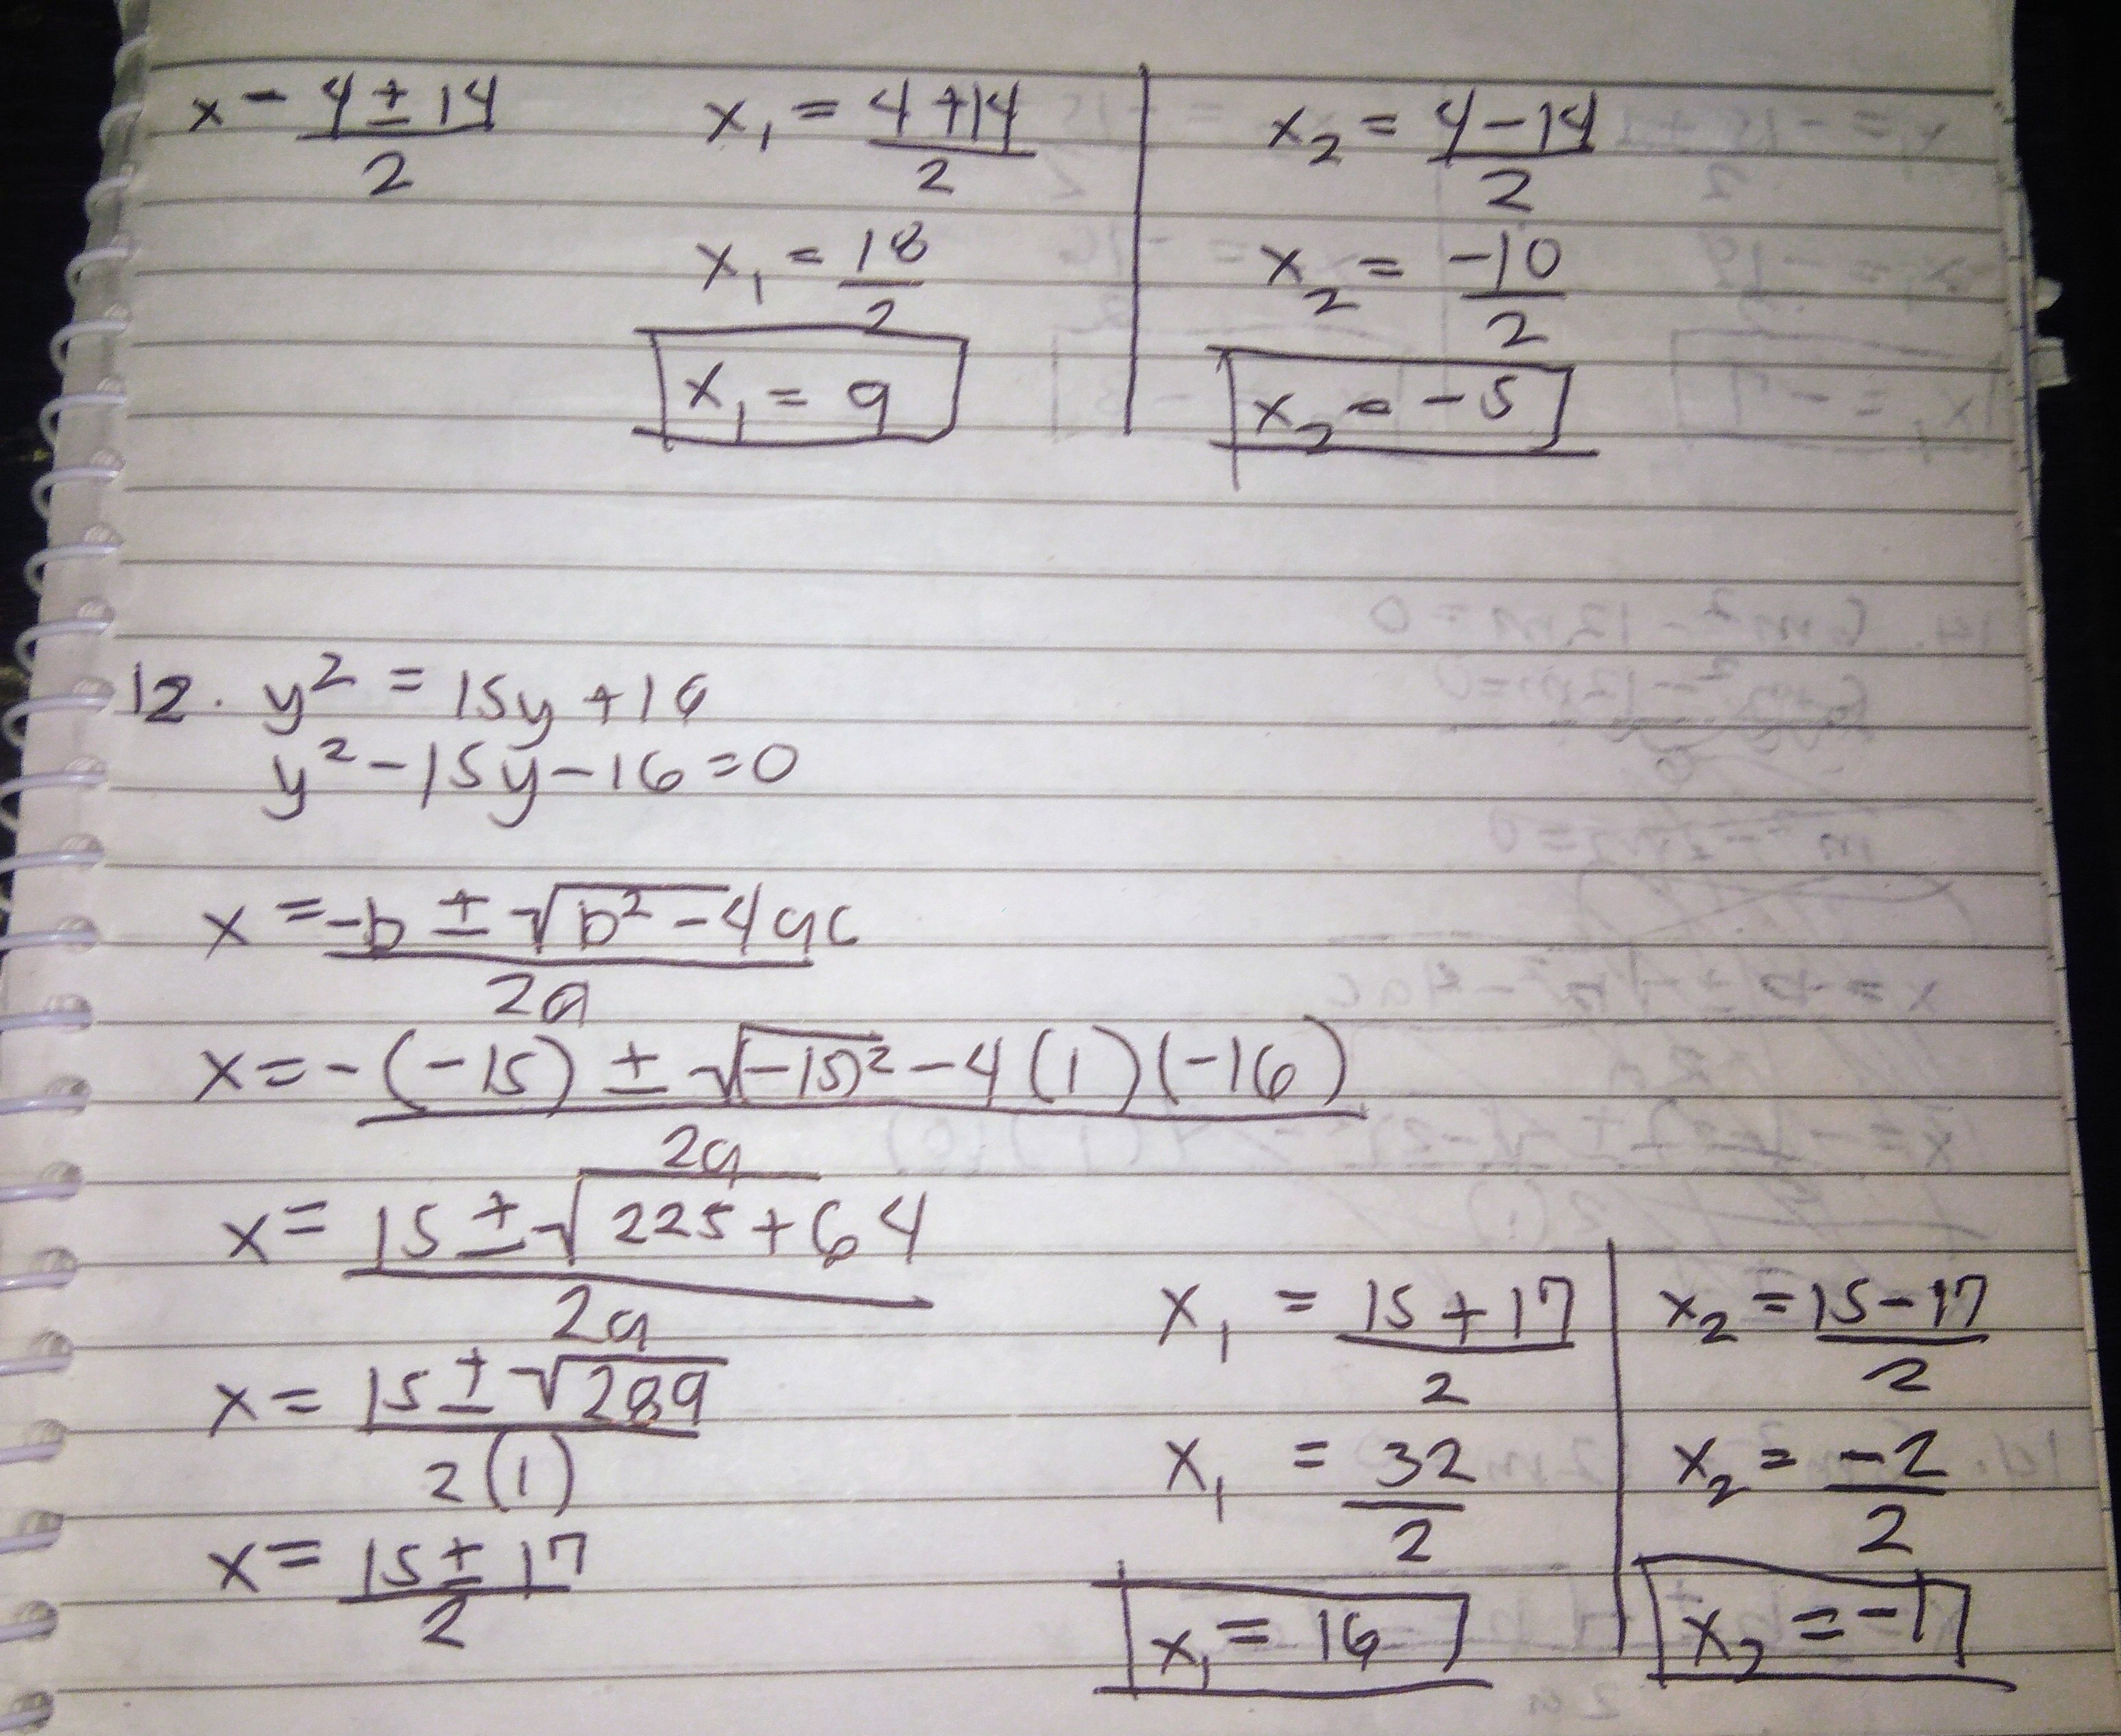 x - 4 ± 14 / 2
x₁ = 4 + 14 / 2
x₁ = 18 / 2
x₁ = 9
x₂ = 4 - 14 / 2
x₂ = -10 / 2
x₂ = -5
12. y² = 15y + 16
y² - 15y - 16 = 0
x = -b ± √b² - 4ac / 2a
x = -(-15) ± √(-15)² - 4(1)(-16) / 2a
x = 15 ± √225 + 64 / 2a
x = 15 ± √289 / 2(1)
x = 15 ± 17 / 2
x₁ = 15 + 17 / 2
x₁ = 32 / 2
x₁ = 16
x₂ = 15 - 17 / 2
x₂ = -2 / 2
x₂ = -1